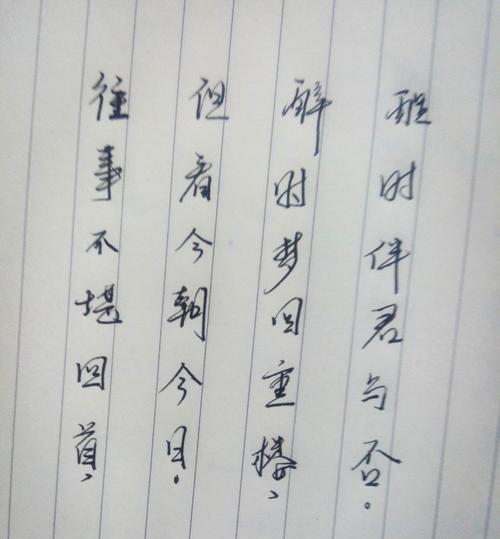 往事不堪回首、
但看今朝今日。
醉时梦回重楼、
醒时伴君与否。